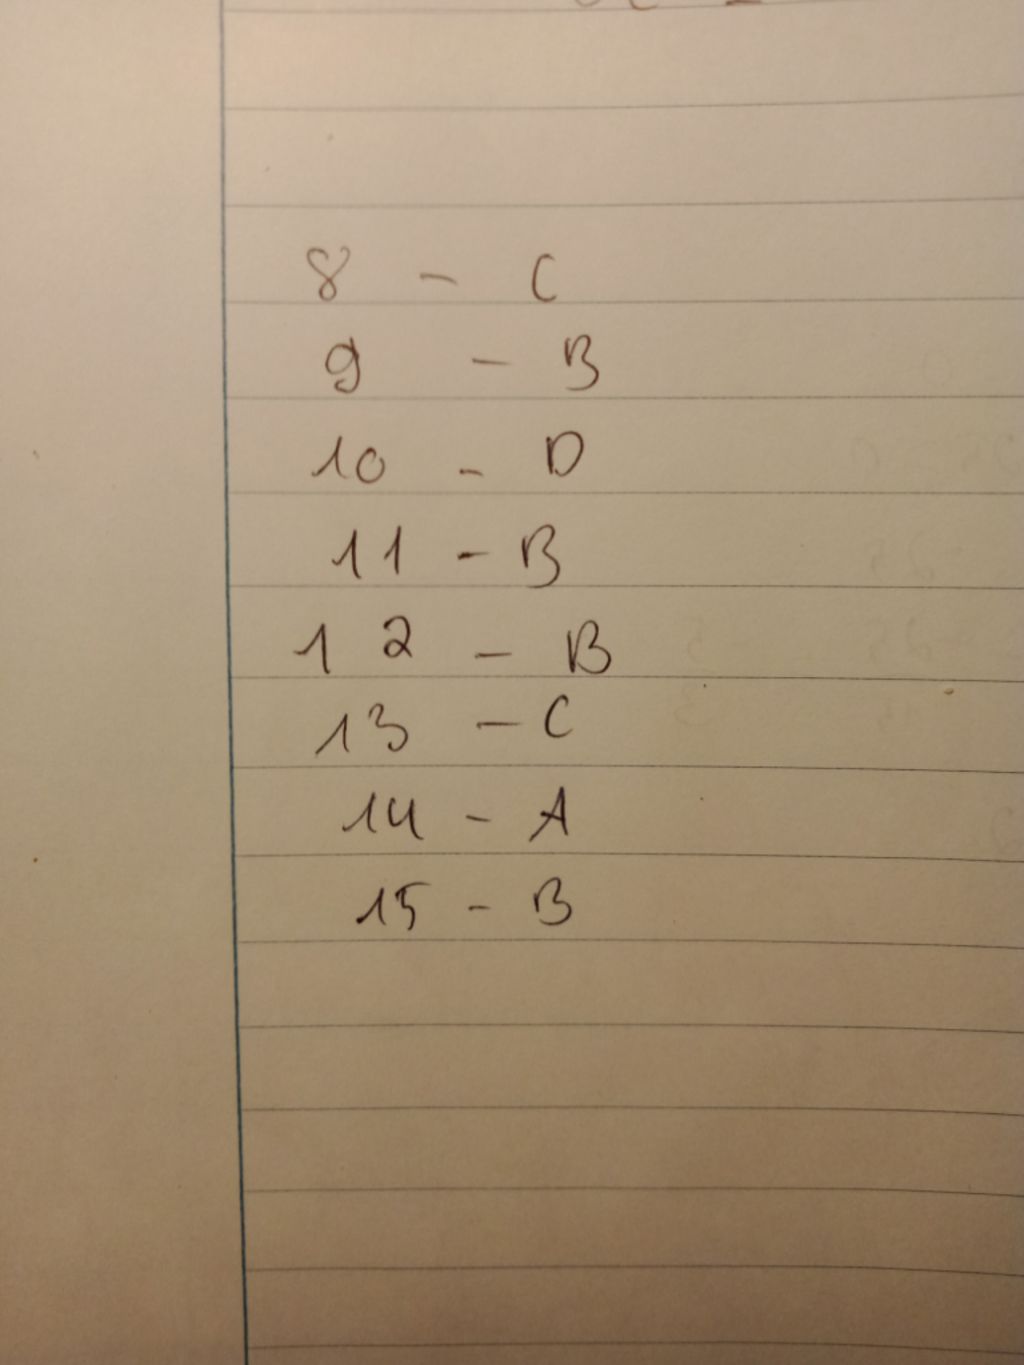 8 - C
9 - B
10 - D
11 - B
12 - B
13 - C
14 - A
15 - B